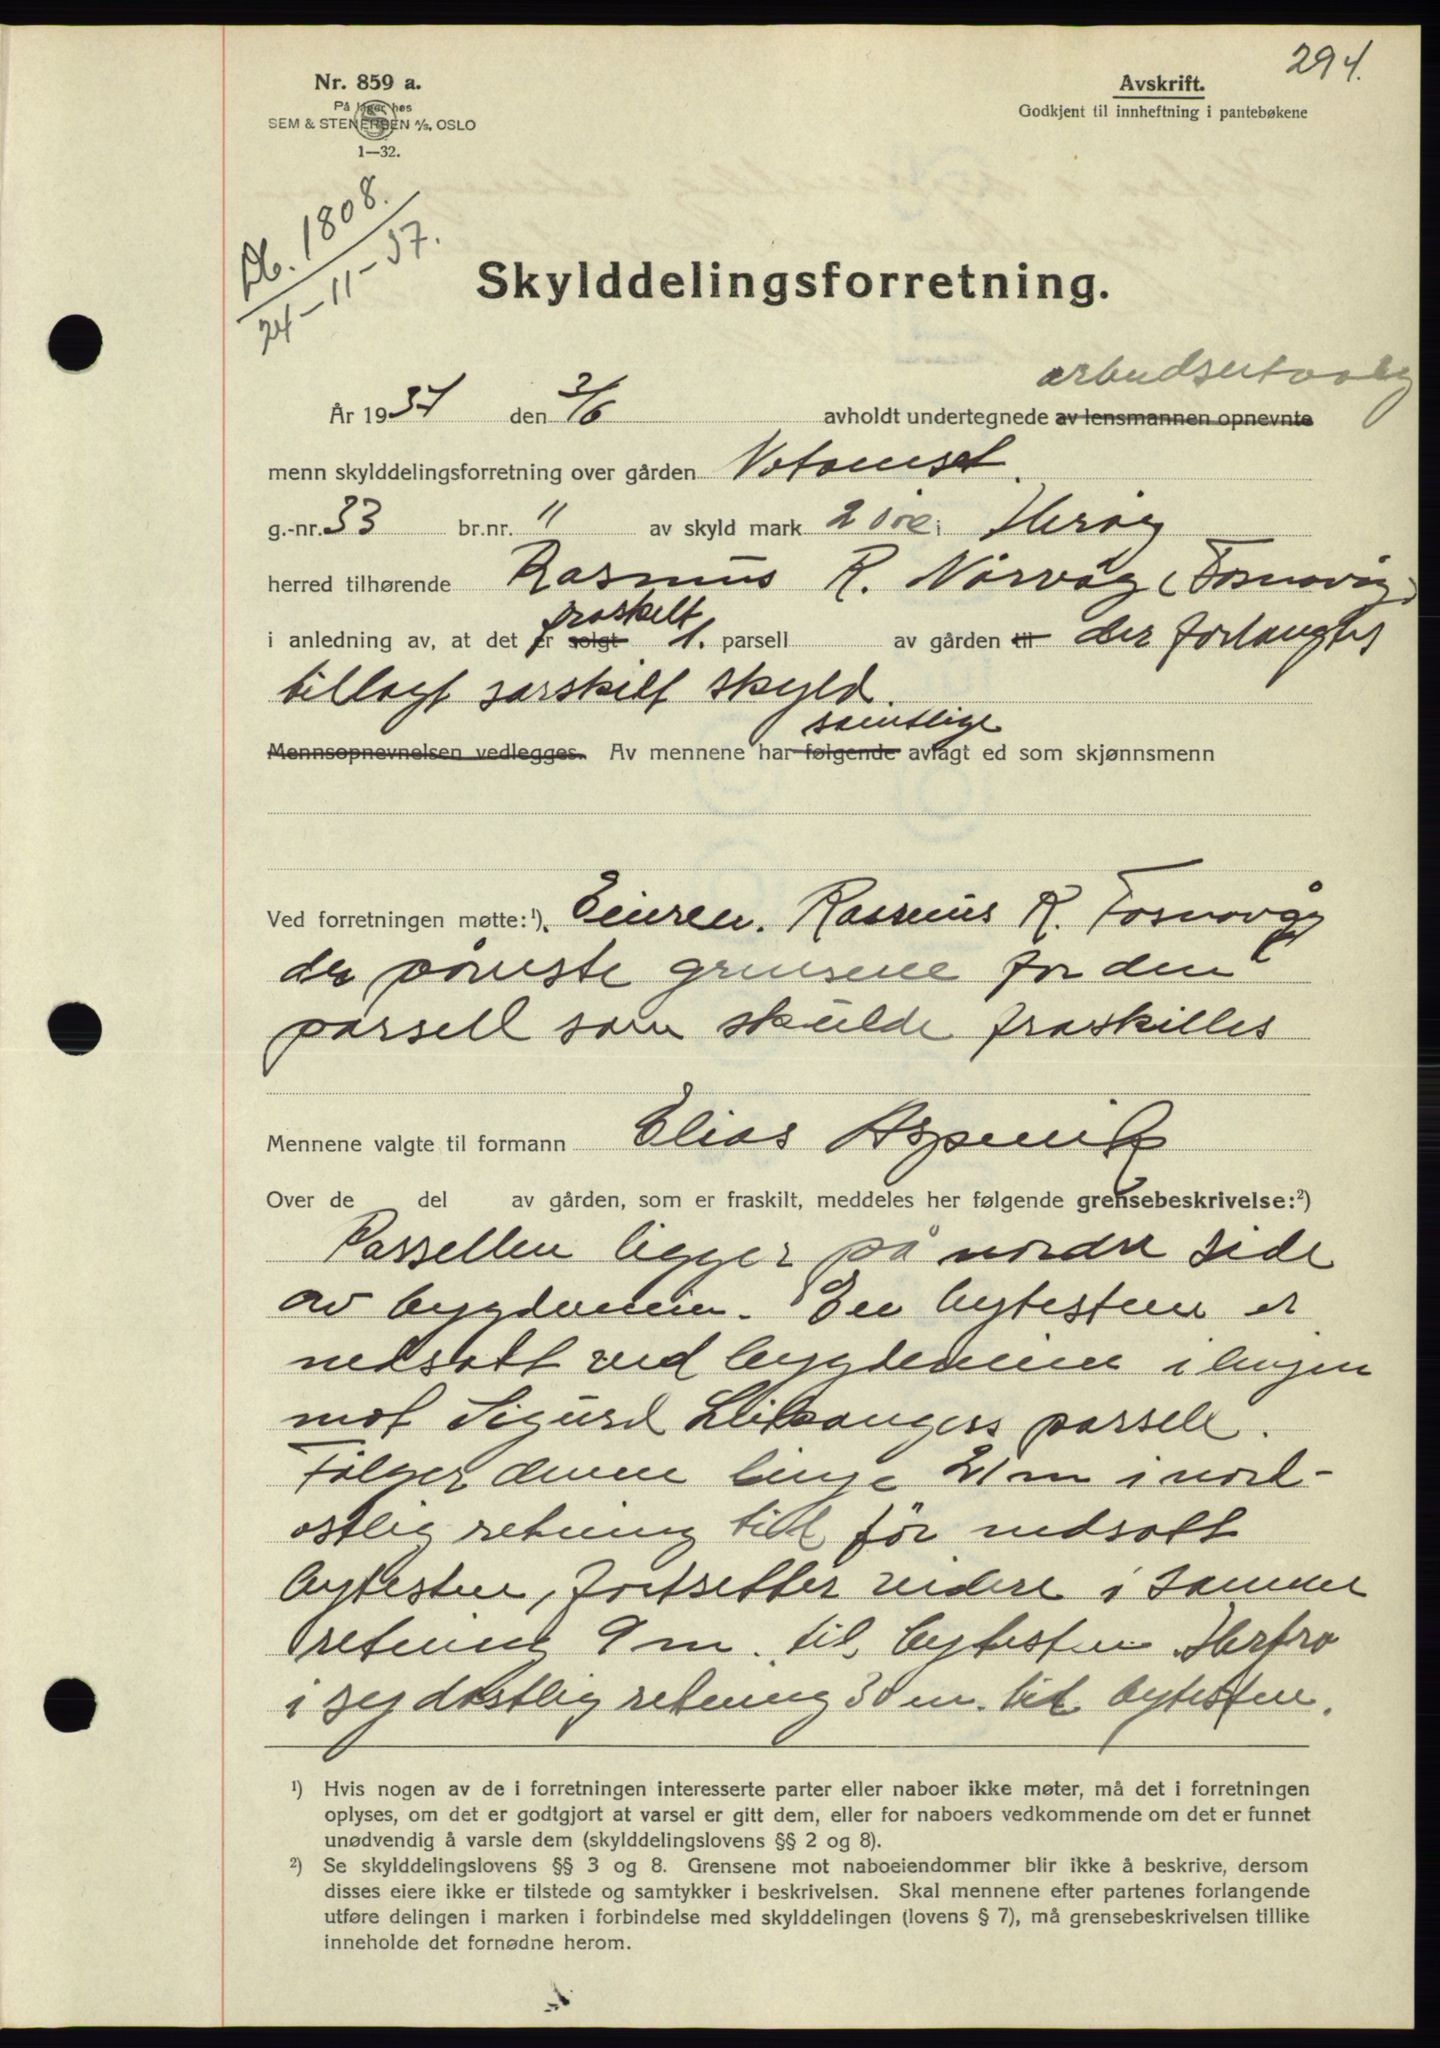 294.
Nr. 859 a.
På lager hos
SEM & STENERSEN A/S, OSLO
1—32.
Avskrift.
Godkjent til innheftning i pantebøkene
Db. 1808.
24-11-37.
Skylddelingsforretning.
År 1937 den 3/6 avholdt undertegnede av lensmannen opnevnte
menn skylddelingsforretning over gården
g.-nr. 33 br.nr. " av skyld mark 2 øre i Herøy
herred tilhørende Rasmus R. Nørvåg (Fosnavåg)
i anledning av, at det er solgt fraskelt 1. parsell av gården til der forlanges
tillagt særskilt skyld.
Mennsopnevnelsen vedlegges. Av mennene har følgende samtlige avlagt ed som skjønnsmenn
Ved forretningen møtte:¹). Eieren. Rasmus R. Fosnavåg
der påviste grensene for den
parsell som skulde fraskilles
Mennene valgte til formann Elias Aspevik
Over de del av gården, som er fraskilt, meddeles her følgende grensebeskrivelse:²)
Parsellen ligger på nordre side
av bygdeveien. En bytesten er
nedsatt ved bygdeveien i linjen
mot Sigurd Leikangers parsell.
Følger denne linje 21 m i nord-
østlig retning til før nedsatt
bytesten, fortsetter videre i samme
retning 9 m. til bytesten. Herfra
i sydøstlig retning 30 m. til bytesten.
¹) Hvis nogen av de i forretningen interesserte parter eller naboer ikke møter, må det i forretningen
oplyses, om det er godtgjort at varsel er gitt dem, eller for naboers vedkommende om det er funnet
unødvendig å varsle dem (skylddelingslovens §§ 2 og 8).
²) Se skylddelingslovens §§ 3 og 8. Grensene mot naboeiendommer blir ikke å beskrive, dersom
disses eiere ikke er tilstede og samtykker i beskrivelsen. Skal mennene efter partenes forlangende
utføre delingen i marken i forbindelse med skylddelingen (lovens § 7), må grensebeskrivelsen tillike
inneholde det fornødne herom.